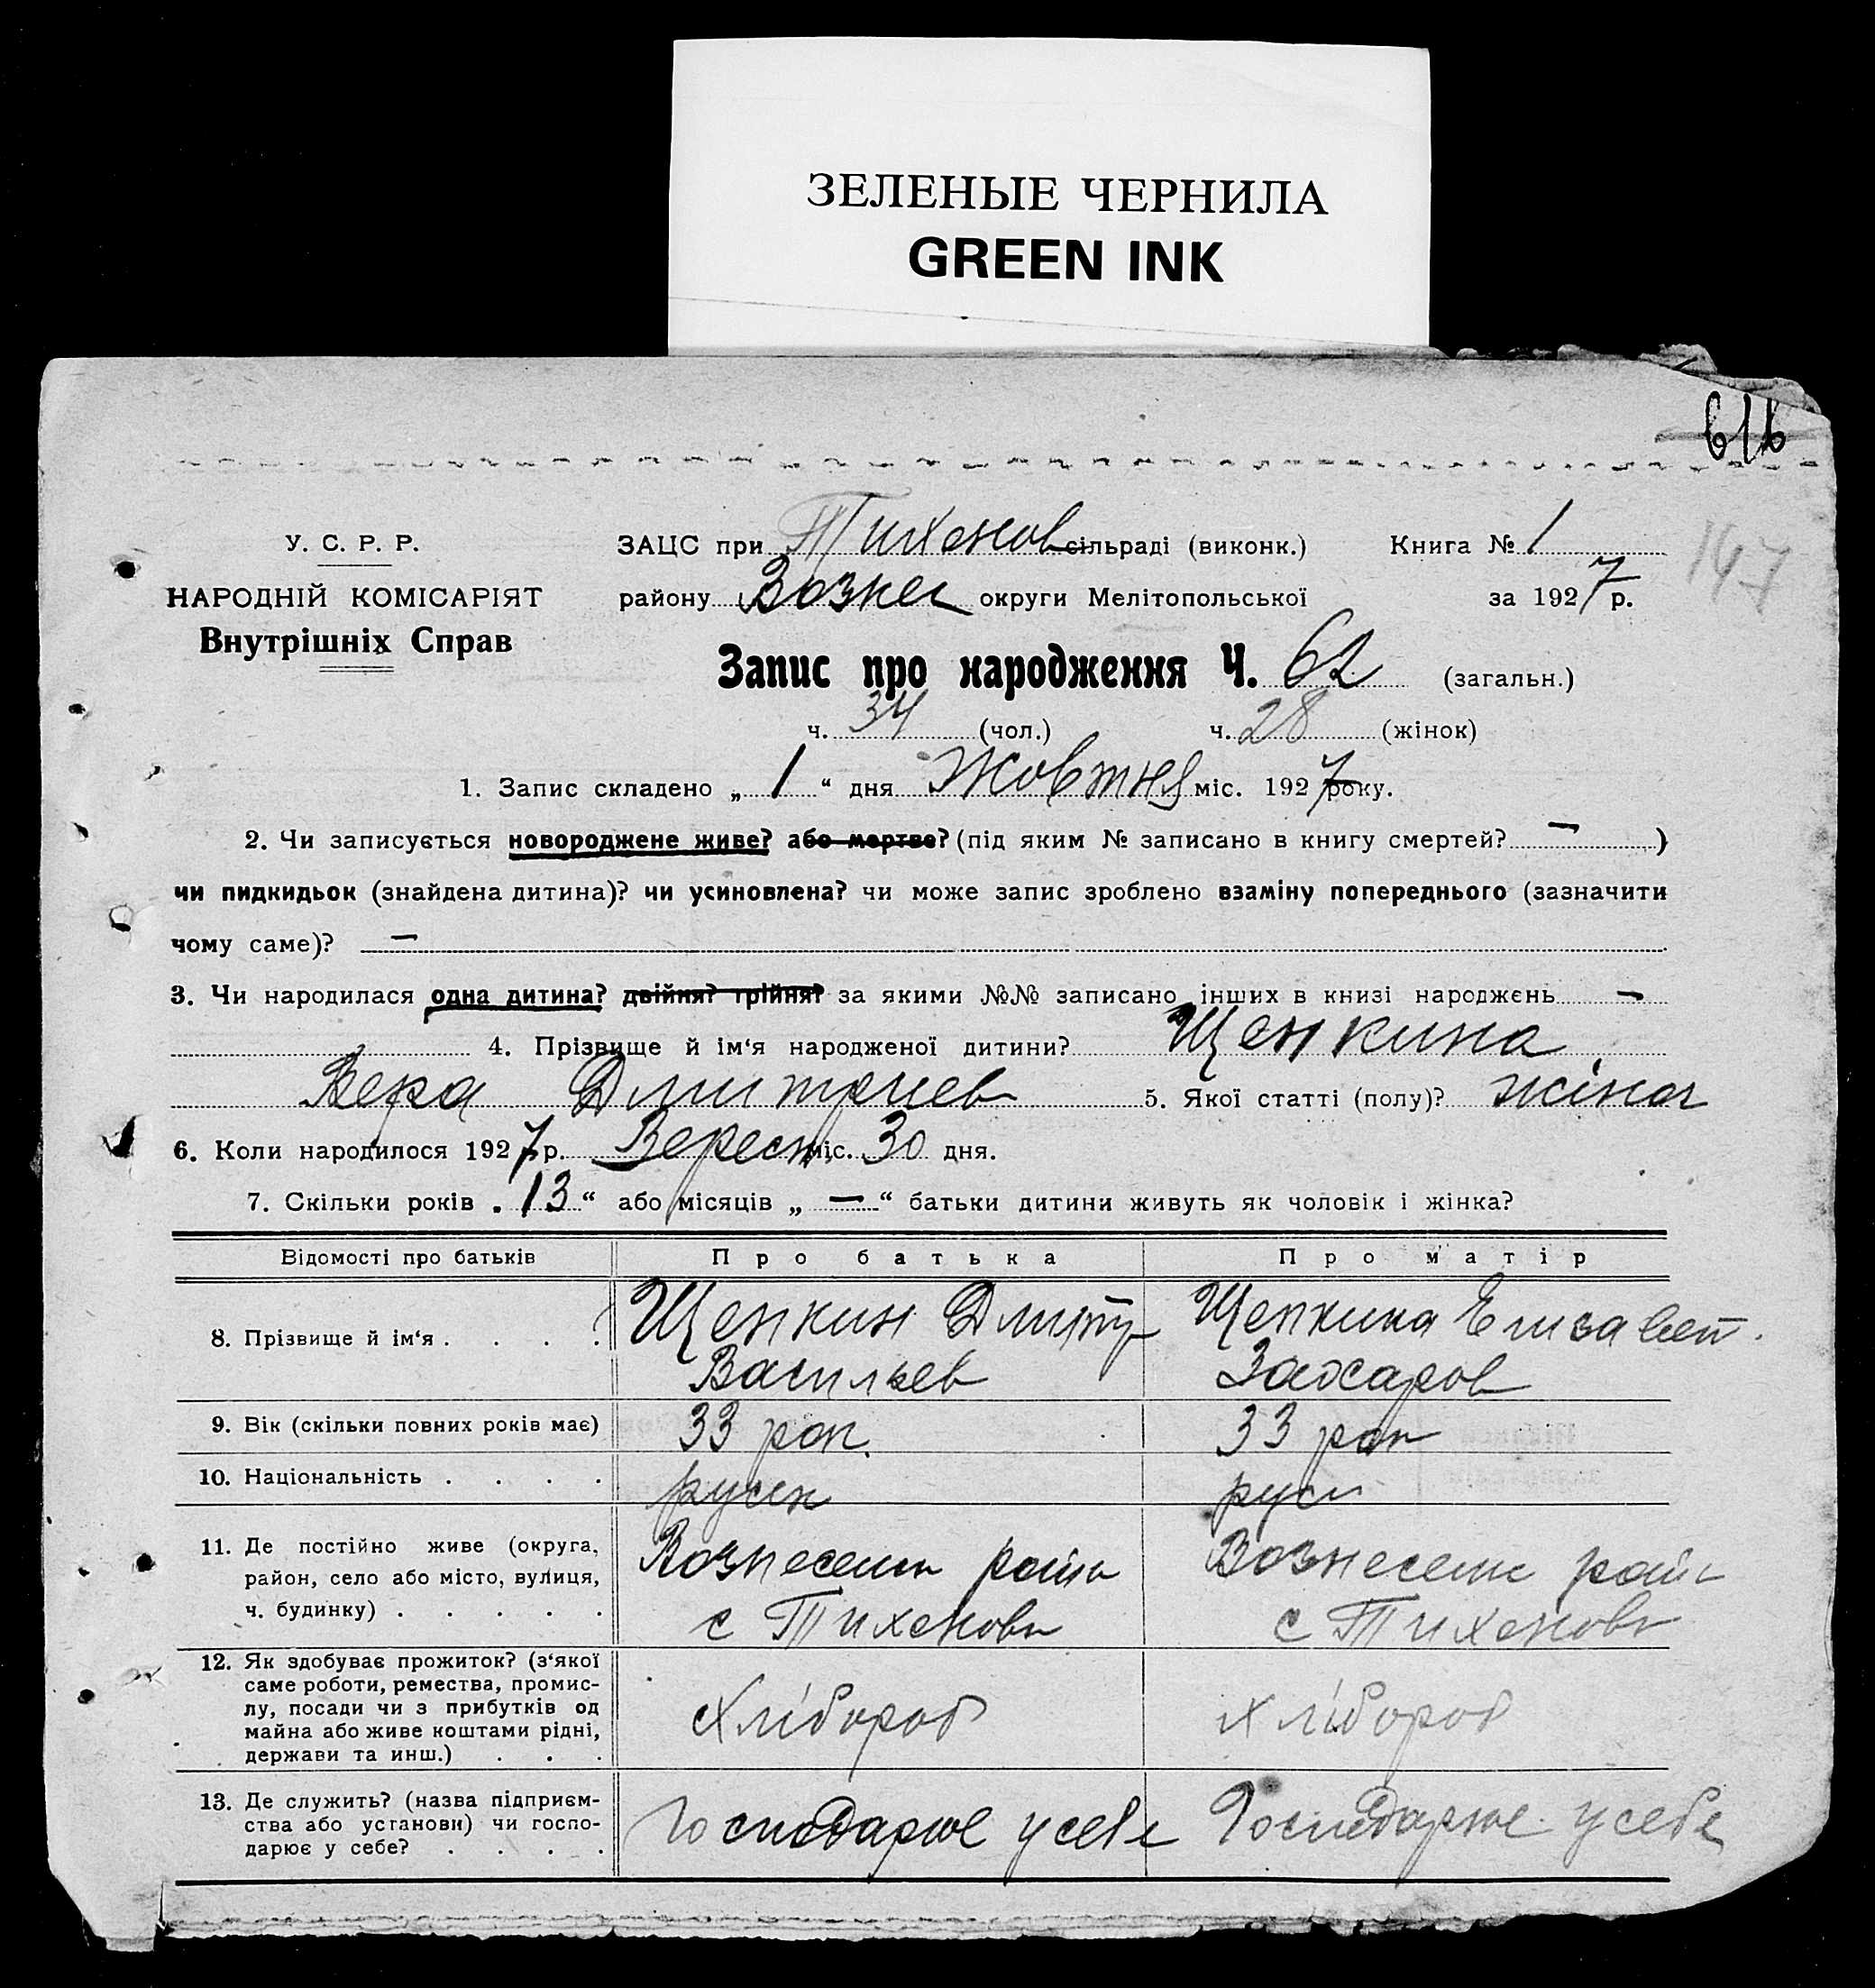 ЗЕЛЕНЫЕ ЧЕРНИЛА
GREEN INK
616
147
У. С. Р. Р.
НАРОДНІЙ КОМІСАРІЯТ
Внутрішніх Справ
ЗАЦС при Тихонов сільраді (виконк.) Книга № 1
району Вознес округи Мелітопольської за 1927 р.
Запис про народження Ч. 62 (загальн.)
ч. 34 (чол.) ч. 28 (жінок)
1. Запис складено „ 1 “ дня Жовтня міс. 1927 року.
2. Чи записується новороджене живе? або мертве? (під яким № записано в книгу смертей? — )
чи пидкидьок (знайдена дитина)? чи усиновлена? чи може запис зроблено взаміну попереднього (зазначити
чому саме)? —
3. Чи народилася одна дитина? двійня? трійня? за якими №№ записано інших в книзі народжень —
4. Прізвище й ім‘я народженої дитини? Щепкина
Вера Дмитриев 5. Якої статті (полу)? жіноч
6. Коли народилося 1927 р. Вересн міс. 30 дня.
7. Скільки років „ 13 “ або місяців „ — “ батьки дитини живуть як чоловік і жінка?
Відомості про батьків Про батька Про матір
8. Прізвище й ім‘я . . . . Щепкин Дмитр Щепкина Елизавет.
Васильев Захаров
9. Вік (скільки повних років має) 33 рок. 33 рок
10. Національність . . . . руск руск
11. Де постійно живе (округа,
район, село або місто, вулиця,
ч. будинку) . . . . .
Вознесенк район
с Тихоновк
Вознесенк район
с Тихоновк
12. Як здобуває прожиток? (з‘якої
саме роботи, ремества, промис-
лу, посади чи з прибутків од
майна або живе коштами рідні,
держави та инш.) . . .
Хлібороб Хлібороб
13. Де служить? (назва підприєм-
ства або установи) чи госпо-
дарює у себе? . . . .
Господарює у себе Господарює у себе